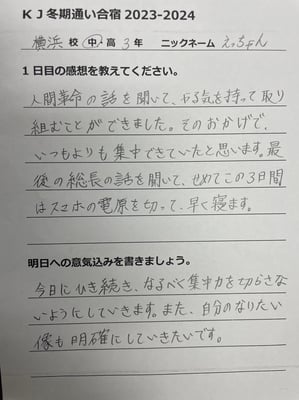 KJ冬期通い合宿 2023-2024
横浜 校 中・高 3 年 ニックネーム えっちゃん
1日目の感想を教えてください。
人間革命の話を聞いて、やる気を持って取り
組むことができました。そのおかげで、
いつもよりも集中できていたと思います。最
後の総長の話を聞いて、せめてこの3日間
はスマホの電原を切って、早く寝ます。
明日への意気込みを書きましょう。
今日にひき続き、なるべく集中力を切らさな
いようにしていきます。また、自分のなりたい
像も明確にしていきたいです。